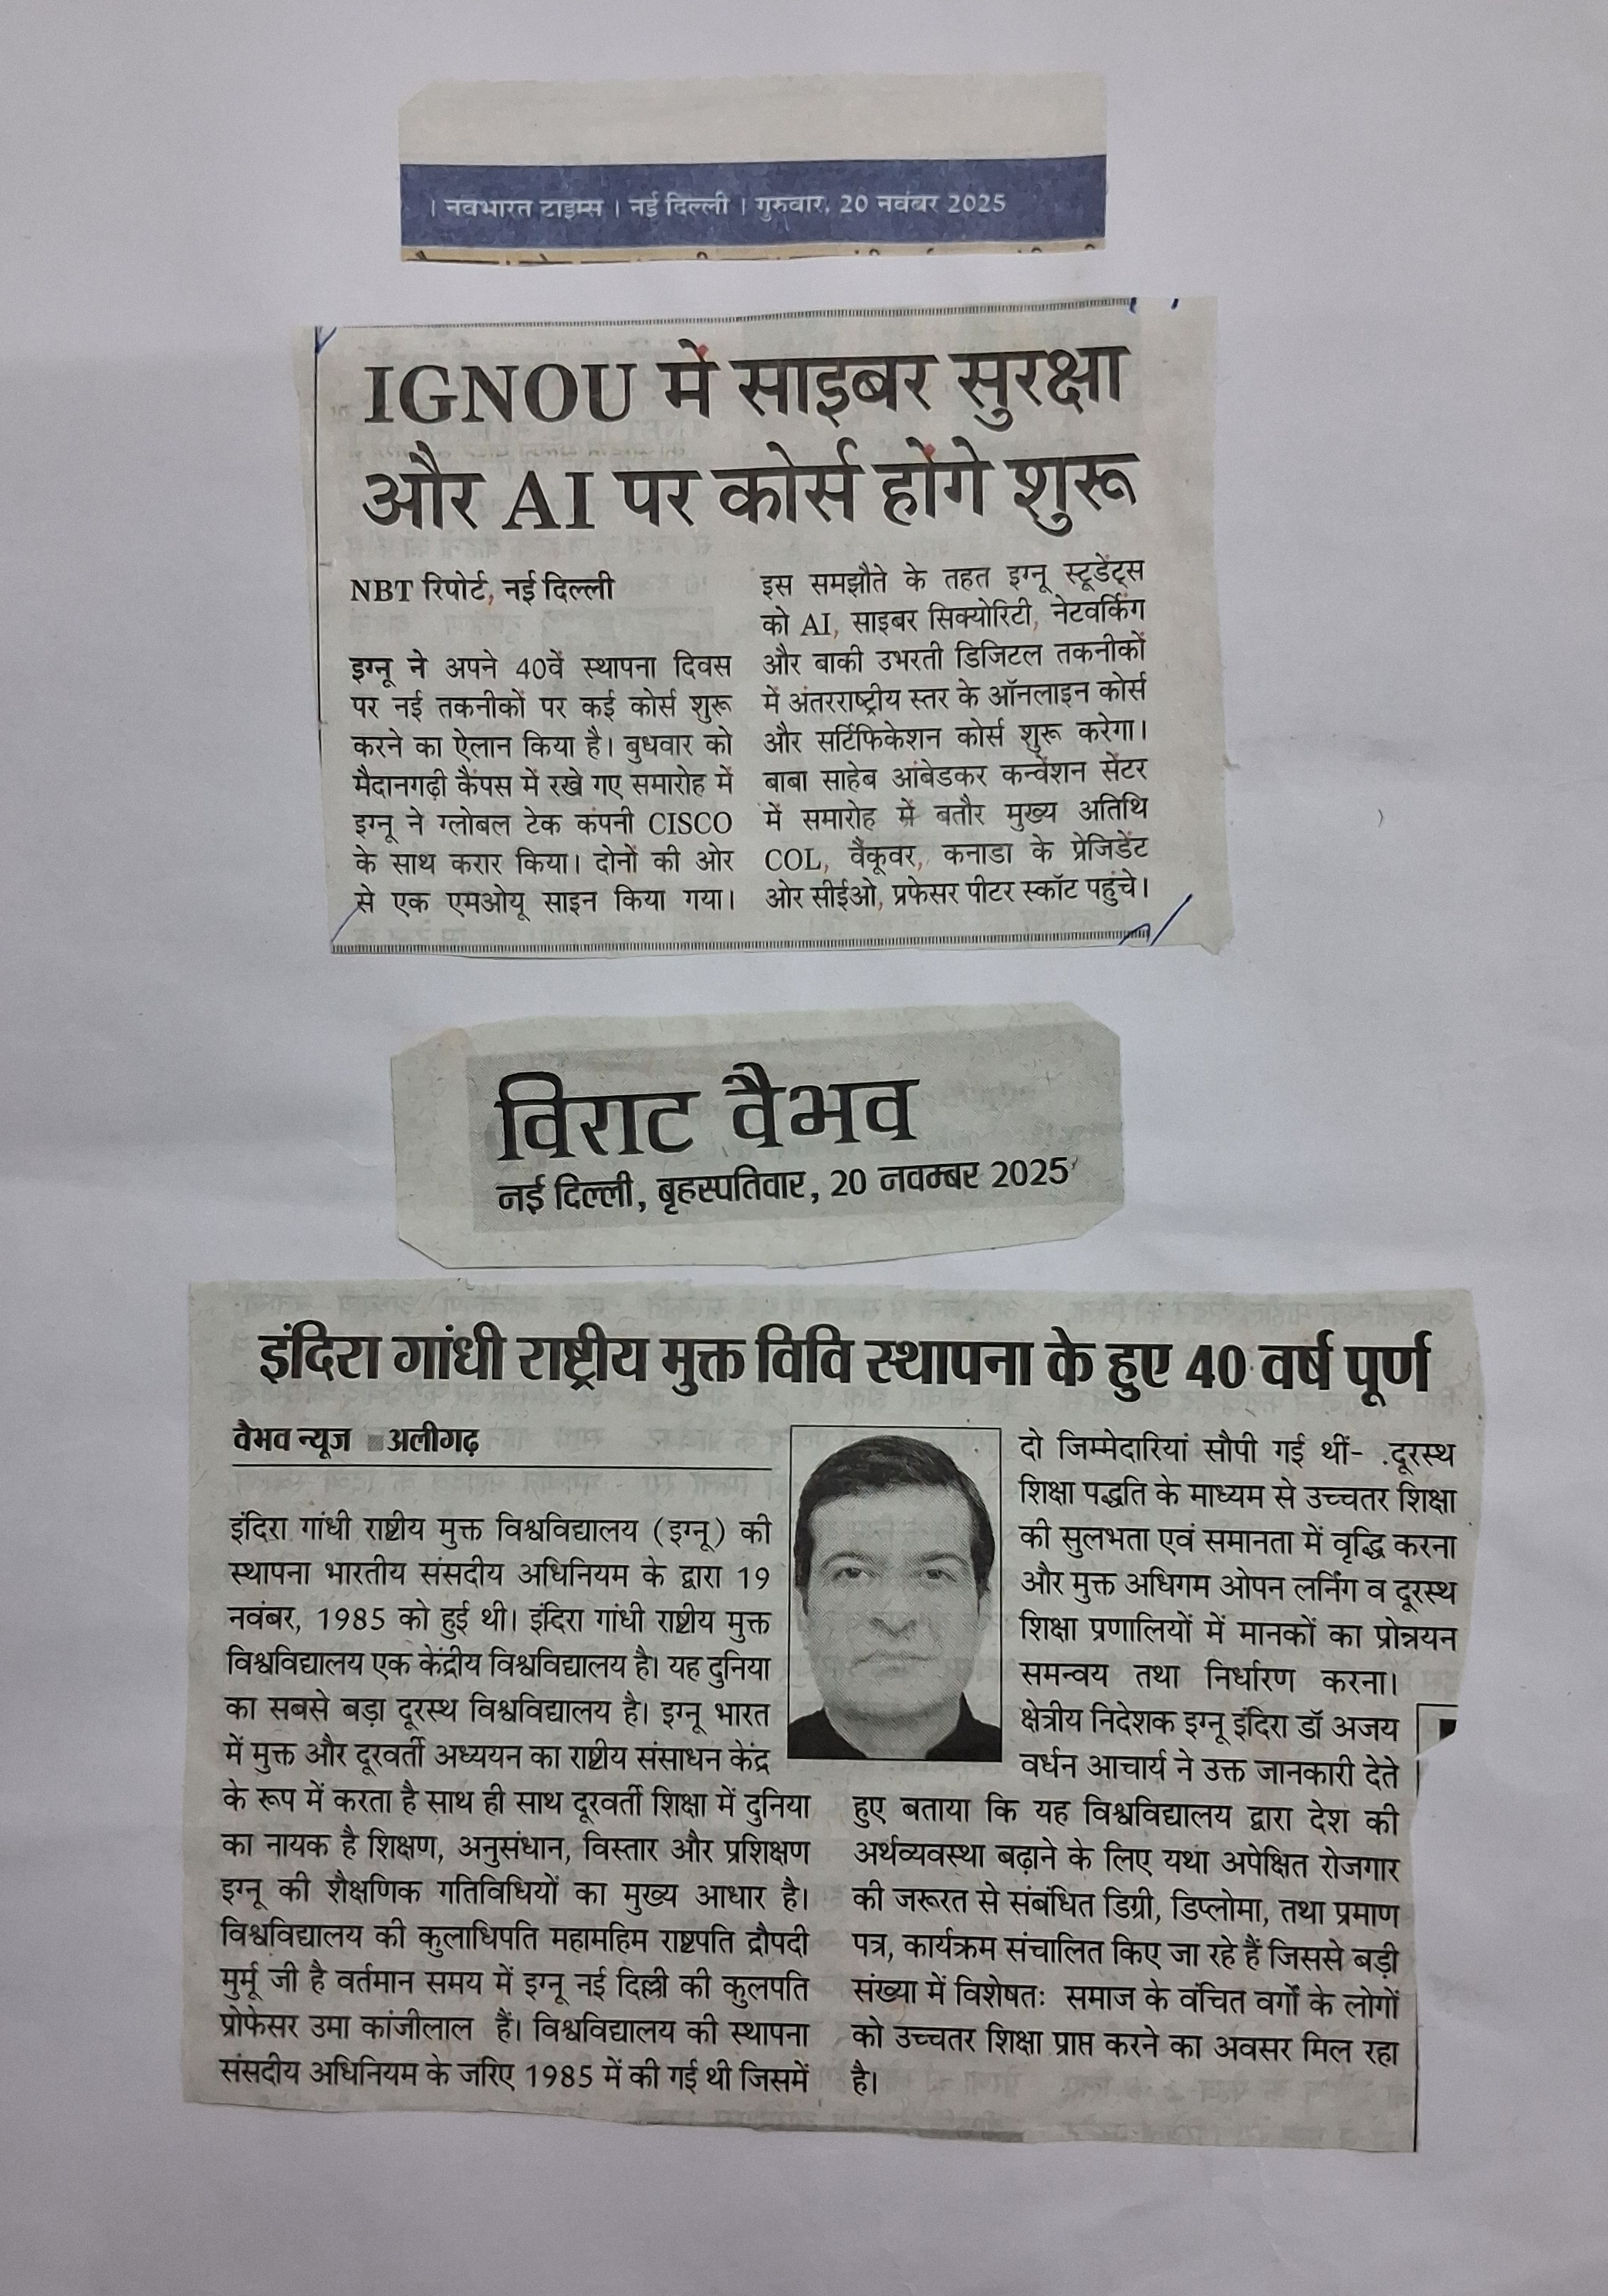 । नवभारत टाइम्स । नई दिल्ली । गुरुवार, 20 नवंबर 2025
IGNOU में साइबर सुरक्षा
और AI पर कोर्स होंगे शुरू
NBT रिपोर्ट, नई दिल्ली
इग्नू ने अपने 40वें स्थापना दिवस
पर नई तकनीकों पर कई कोर्स शुरू
करने का ऐलान किया है। बुधवार को
मैदानगढ़ी कैंपस में रखे गए समारोह में
इग्नू ने ग्लोबल टेक कंपनी CISCO
के साथ करार किया। दोनों की ओर
से एक एमओयू साइन किया गया।
इस समझौते के तहत इग्नू स्टूडेंट्स
को AI, साइबर सिक्योरिटी, नेटवर्किंग
और बाकी उभरती डिजिटल तकनीकों
में अंतरराष्ट्रीय स्तर के ऑनलाइन कोर्स
और सर्टिफिकेशन कोर्स शुरू करेगा।
बाबा साहेब आंबेडकर कन्वेंशन सेंटर
में समारोह में बतौर मुख्य अतिथि
COL, वैंकूवर, कनाडा के प्रेजिडेंट
ओर सीईओ, प्रफेसर पीटर स्कॉट पहुंचे।
विराट वैभव
नई दिल्ली, बृहस्पतिवार, 20 नवम्बर 2025
इंदिरा गांधी राष्ट्रीय मुक्त विवि स्थापना के हुए 40 वर्ष पूर्ण
वैभव न्यूज ■ अलीगढ़
इंदिरा गांधी राष्टीय मुक्त विश्वविद्यालय (इग्नू) की
स्थापना भारतीय संसदीय अधिनियम के द्वारा 19
नवंबर, 1985 को हुई थी। इंदिरा गांधी राष्टीय मुक्त
विश्वविद्यालय एक केंद्रीय विश्वविद्यालय है। यह दुनिया
का सबसे बड़ा दूरस्थ विश्वविद्यालय है। इग्नू भारत
में मुक्त और दूरवर्ती अध्ययन का राष्टीय संसाधन केंद्र
के रूप में करता है साथ ही साथ दूरवर्ती शिक्षा में दुनिया
का नायक है शिक्षण, अनुसंधान, विस्तार और प्रशिक्षण
इग्नू की शैक्षणिक गतिविधियों का मुख्य आधार है।
विश्वविद्यालय की कुलाधिपति महामहिम राष्टपति द्रौपदी
मुर्मू जी है वर्तमान समय में इग्नू नई दिल्ली की कुलपति
प्रोफेसर उमा कांजीलाल हैं। विश्वविद्यालय की स्थापना
संसदीय अधिनियम के जरिए 1985 में की गई थी जिसमें
दो जिम्मेदारियां सौपी गई थीं- .दूरस्थ
शिक्षा पद्धति के माध्यम से उच्चतर शिक्षा
की सुलभता एवं समानता में वृद्धि करना
और मुक्त अधिगम ओपन लर्निंग व दूरस्थ
शिक्षा प्रणालियों में मानकों का प्रोन्नयन
समन्वय तथा निर्धारण करना।
क्षेत्रीय निदेशक इग्नू इंदिरा डॉ अजय
वर्धन आचार्य ने उक्त जानकारी देते
हुए बताया कि यह विश्वविद्यालय द्वारा देश की
अर्थव्यवस्था बढ़ाने के लिए यथा अपेक्षित रोजगार
की जरूरत से संबंधित डिग्री, डिप्लोमा, तथा प्रमाण
पत्र, कार्यक्रम संचालित किए जा रहे हैं जिससे बड़ी
संख्या में विशेषतः समाज के वंचित वर्गों के लोगों
को उच्चतर शिक्षा प्राप्त करने का अवसर मिल रहा
है।